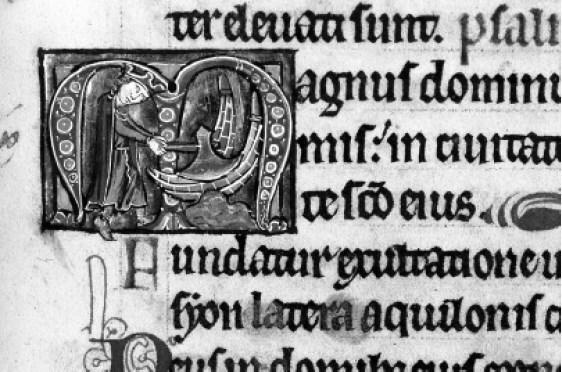 ter eleuati sunt. psal
Magnus dominu
mis: in ciuitat
te sco eius.
Fundatur exultatione u
syon latera aquilonis c
Deus in domibus eius